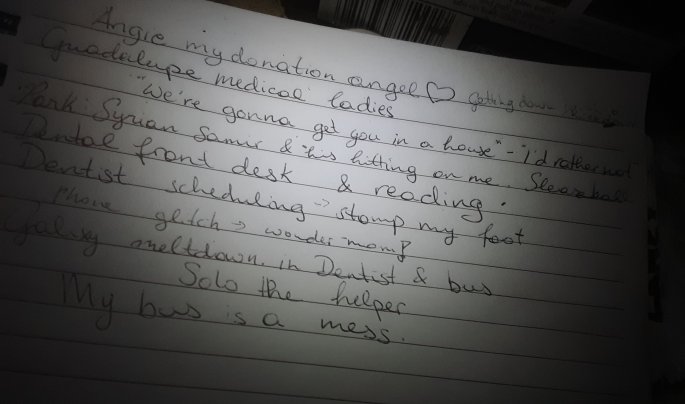 Angie my donation angel ♡ Getting down
Guadalupe medical ladies
"We're gonna get you in a house" - "I'd rather not
Park: Syrian Samir & his hitting on me. Sleazeball
Dental front desk & reading.
Dentist scheduling → stomp my foot
Phone glitch → wonder mom?
Galaxy meltdown in Dentist & bus
Solo the helper
My bus is a mess.